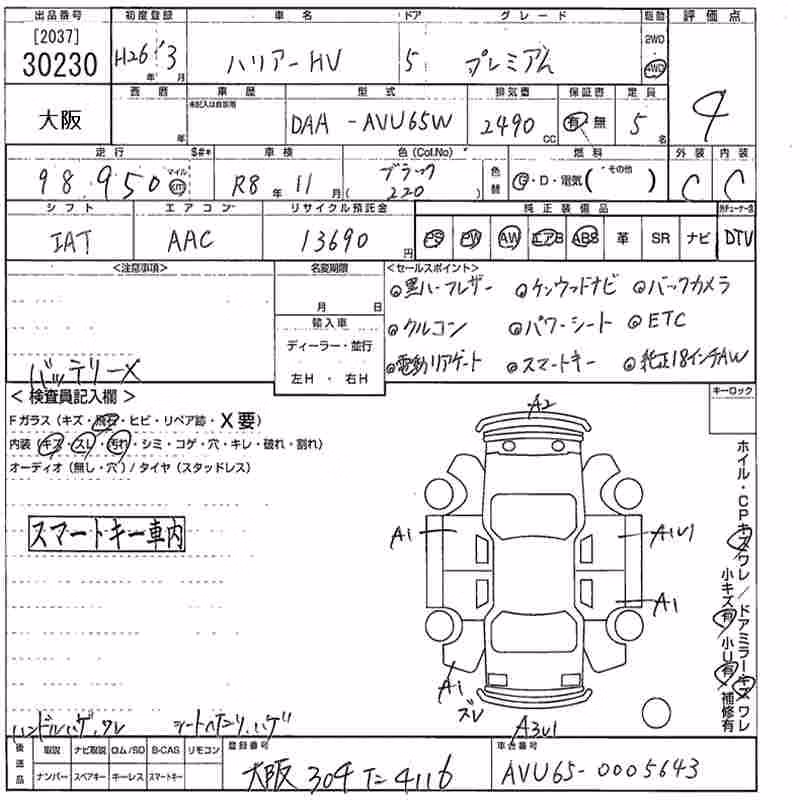 出品番号 初度登録 車名 ドア グレード 駆動 評価点
[2037]
30230 H26 年 3 月 ハリアーHV 5 プレミアム 2WD 4WD
大阪 西暦 年 車歴 未記入は自家用 型式 DAA-AVU65W 排気量 2490 CC 保証書 有・無 定員 5 名 4
走行 $#* 車検 色(Col.No) 色替 燃料 外装 内装
98,950 マイル km R8 年 11 月 ブラック ( 220 ) G・D・電気( その他 ) C C
シフト エアコン リサイクル預託金 純正装備品
IAT AAC 13690 円 PS PW AW エアB ABS 革 SR ナビ DTV
<注意事項> 名変期限 <セールスポイント>
月 日 ◎黒ハーフレザー ◎ケンウッドナビ ◎バックカメラ
輸入車
ディーラー・並行 ◎クルコン ◎パワーシート ◎ETC
左H・右H
バッテリーX ◎電動リアゲート ◎スマートキー ◎純正18インチAW
<検査員記入欄> キーロック
Fガラス(キズ・飛石・ヒビ・リペア跡・X要)
内装(キズ・スレ・汚れ・シミ・コゲ・穴・キレ・破れ・割れ)
オーディオ(無し・穴)/タイヤ(スタッドレス)
スマートキー車内
A2
A1 A1U1
A1
A1
ズレ
A3U1
ホイル・CPキズワレ/ドアミラーキズワレ
小キズ有 小U有 補修有
ハンドルハゲ、ワレ シートヘタリ、ハゲ
後送品 取説 ナビ取説 ロム/SD B-CAS リモコン 登録番号 車台番号
ナンバー スペアキー キーレス スマートキー 大阪 304 た 4116 AVU65-0005643